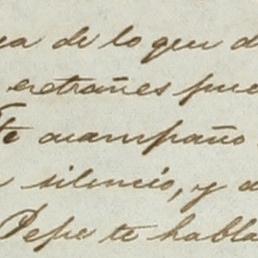 de lo que d
extrañes pue
Te acompaño
silencio, y d
Pepe te habla